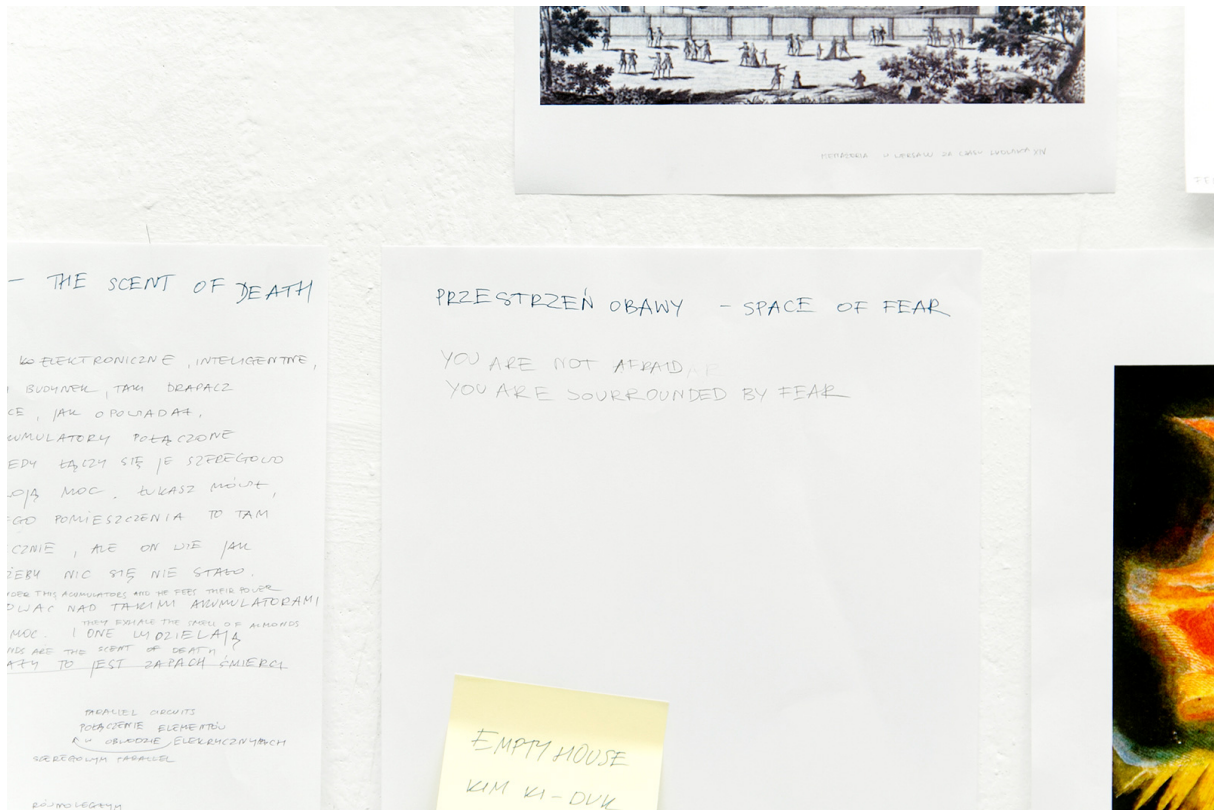 MENAŻERIA W WERSALU ZA CZASÓW LUDWIKA XIV
— THE SCENT OF DEATH
ELEKTRONICZNE, INTELIGENTNE,
BUDYNEK, TAKI DRAPACZ
CE, JAK OPOWIADAŁ,
KUMULATORY POŁĄCZONE
EDY ŁĄCZY SIĘ JE SZEREGOWO
WOJĄ MOC. ŁUKASZ MÓWIŁ,
EGO POMIESZCZENIA TO TAM
CZNIE, ALE ON WIE JAK
ŻEBY NIC SIĘ NIE STAŁO.
THIS ACUMULATORS AND HE FEES THEIR POWER
OWAĆ NAD TAKIMI AKUMULATORAMI
THEY EXHALE THE SMELL OF ALMONDS
MOC. I ONE WYDZIELAJĄ
NDS ARE THE SCENT OF DEATH
TO JEST ZAPACH ŚMIERCI
PARALLEL CIRCUITS
POŁĄCZENIE ELEMENTÓW
W OBWODZIE ELEKRYCZNYMCH
SZEREGOWYM PARALLEL
RÓWNOLEGŁYM
PRZESTRZEŃ OBAWY – SPACE OF FEAR
YOU ARE NOT AFRAID
YOU ARE SOURROUNDED BY FEAR
EMPTY HOUSE
KIM KI-DUK